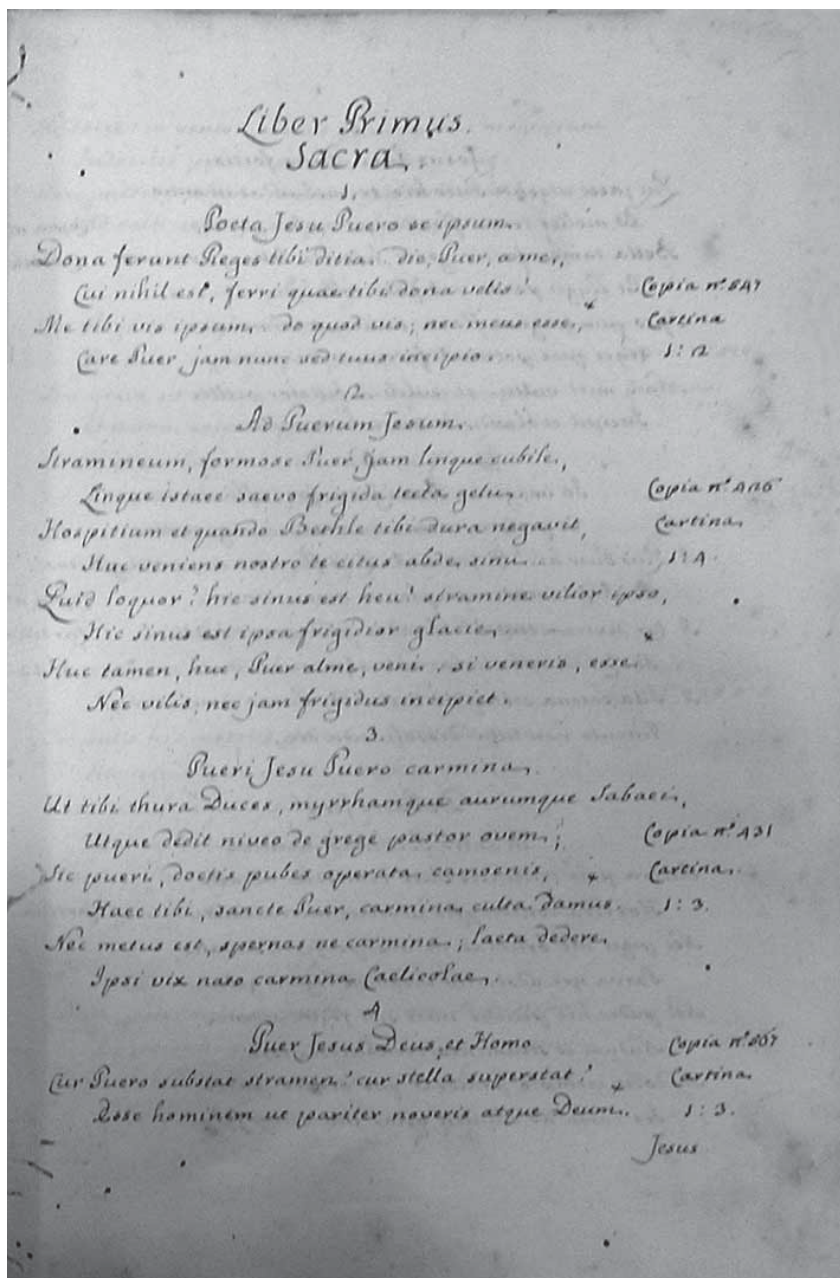 Liber Primus.
Sacra.
1.
Poeta Jesu Puero se ipsum.
Dona ferunt Reges tibi ditia. dic, Puer, a me,
Cui nihil est, ferri quae tibi dona velis?
Copia nº 847
Me tibi vis ipsum. do quod vis; nec meus esse,
Cartina
Care Puer, jam nunc sed tuus incipio.
1:2
2.
Ad Puerum Jesum.
Stramineum, formose Puer, jam linque cubile,
Linque istaec saevo frigida tecta gelu.
Copia nº
Hospitium et quando Bethle tibi dura negavit,
Cartina
Huc veniens nostro te citus abde sinu.
1:4.
Quid loquor? hic sinus est heu! stramine vilior ipso,
Hic sinus est ipsa frigidior glacie.
Huc tamen, huc, Puer alme, veni. si veneris, esse
Nec vilis, nec jam frigidus incipiet.
3.
Pueri Jesu Puero carmina.
Ut tibi thura Duces, myrrhamque aurumque Sabaei,
Utque dedit niveo de grege pastor ovem;
Copia nº 431
Sic pueri, doctis pubes operata camoenis,
Cartina
Haec tibi, sancte Puer, carmina culta damus.
1:3.
Nec metus est, spernas ne carmina; laeta dedere
Ipsi vix nato carmina Caelicolae.
4
Puer Jesus Deus, et Homo
Copia nº
Cur Puero substat stramen? cur stella superstat?
Cartina
Esse hominem ut pariter noveris atque Deum.
1:3.
Jesus